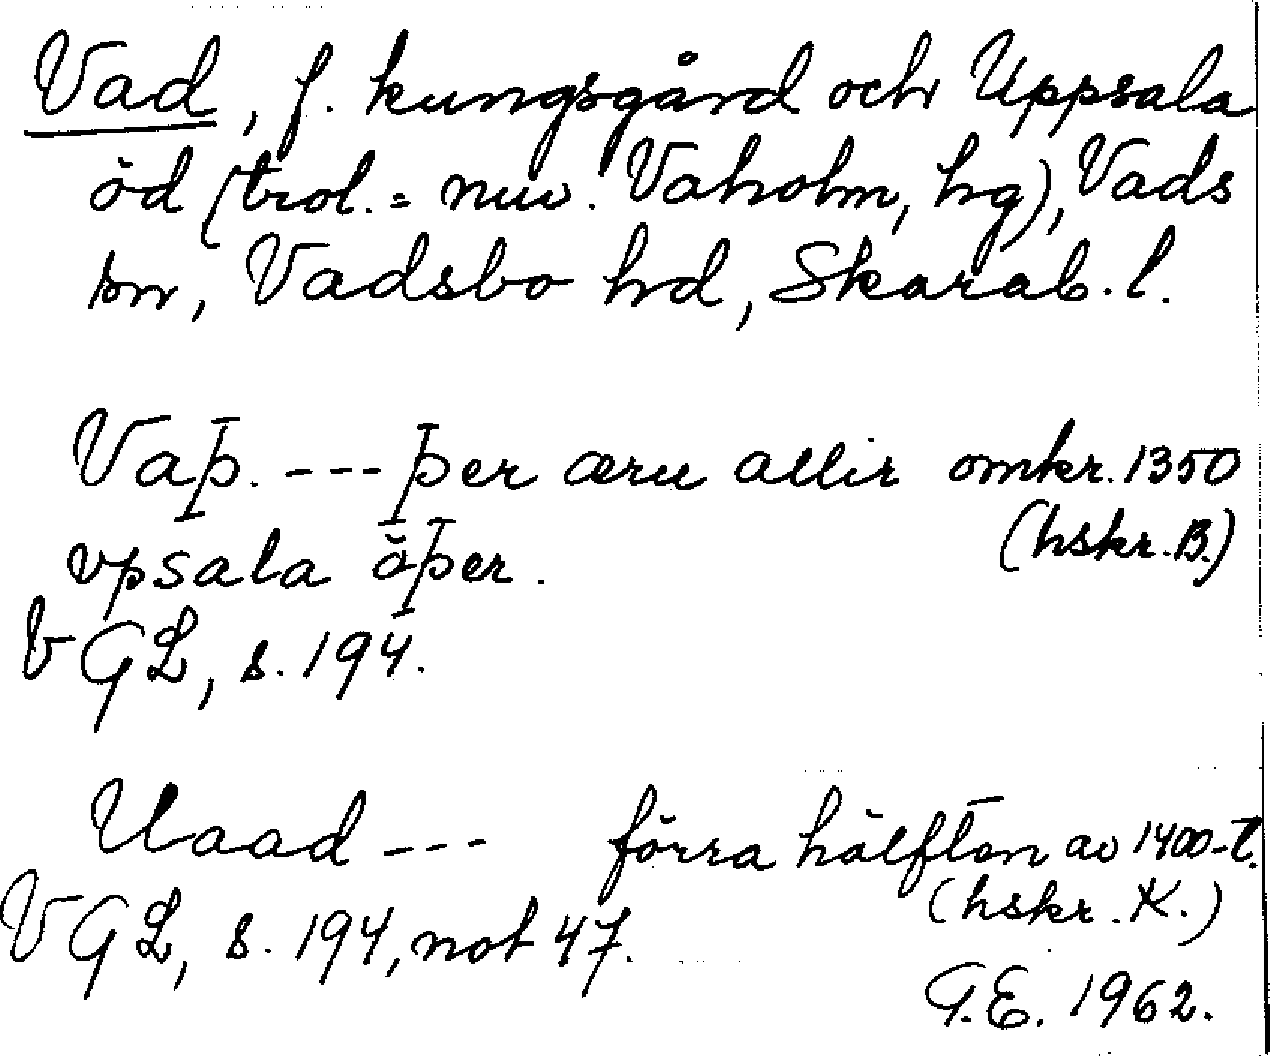 Vad, f. kungsgård och Uppsala
öd (trol. = nuv. Vaholm, hg), Vads
sn, Vadsbo hd, Skarab. l.
Vaþ. --- þer æru allir omkr. 1350
(hskr. B.)
vpsala öþer.
VGL, s. 194.
Uaad --- förra hälften av 1400-t.
(hskr. K.)
VGL, s. 194, not 47.
G.E. 1962.